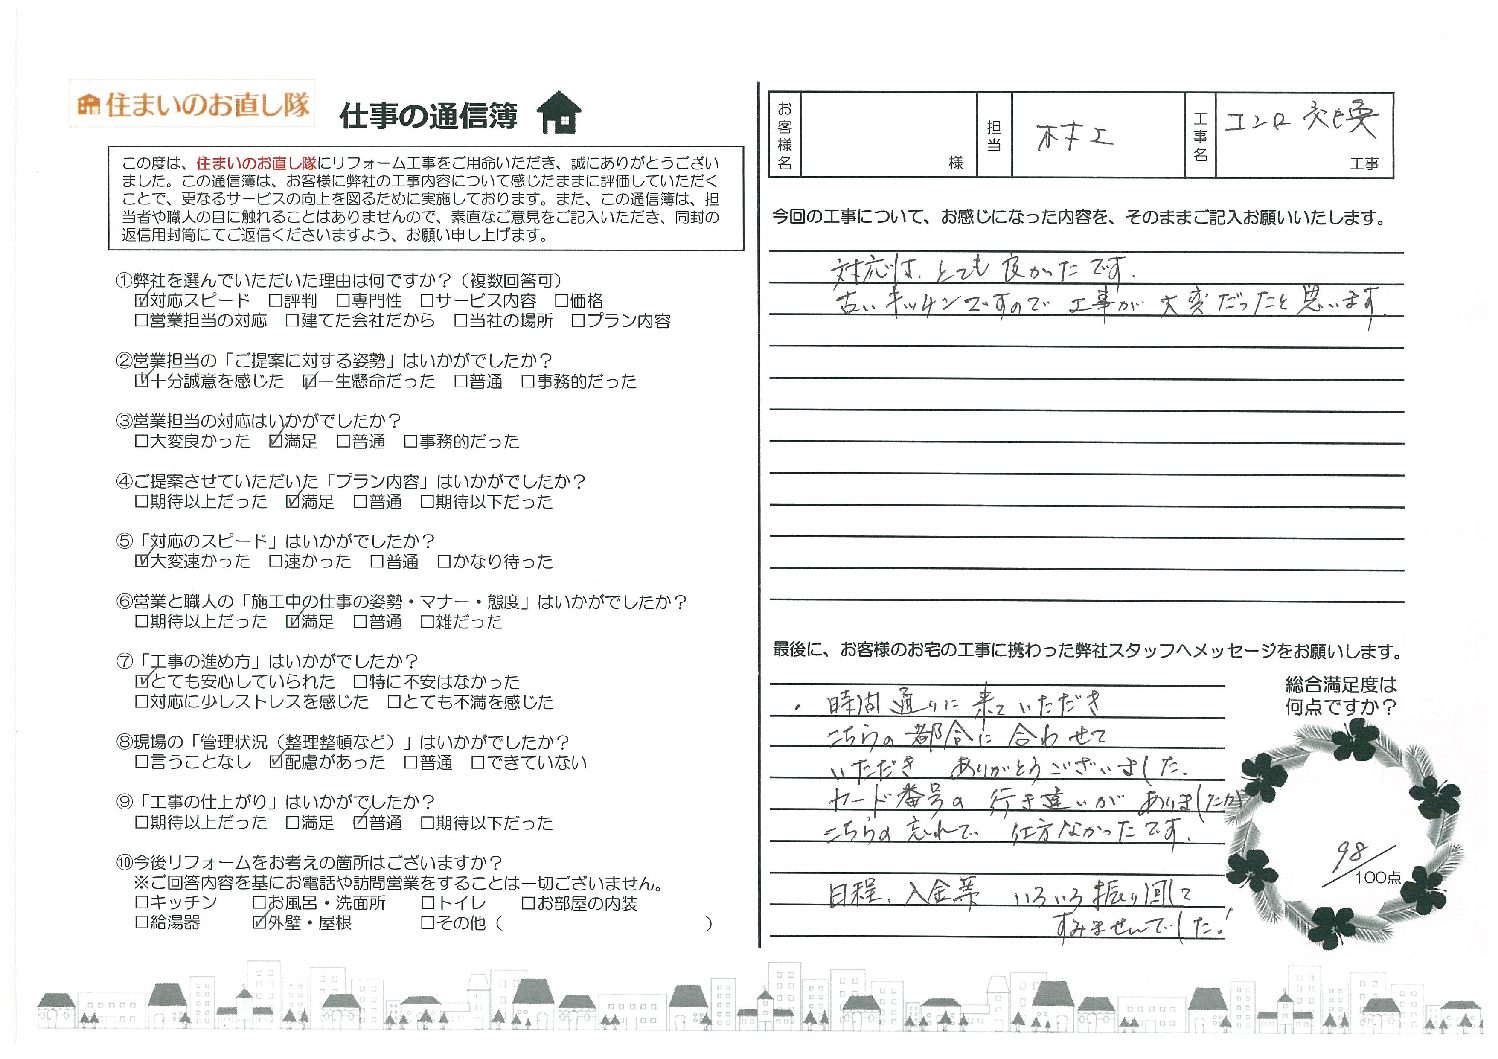 住まいのお直し隊
仕事の通信簿
この度は、住まいのお直し隊にリフォーム工事をご用命いただき、誠にありがとうござい
ました。この通信簿は、お客様に弊社の工事内容について感じたままに評価していただく
ことで、更なるサービスの向上を図るために実施しております。また、この通信簿は、担
当者や職人の目に触れることはありませんので、素直なご意見をご記入いただき、同封の
返信用封筒にてご返信くださいますよう、お願い申し上げます。
①弊社を選んでいただいた理由は何ですか？（複数回答可）
☑対応スピード □評判 □専門性 □サービス内容 □価格
□営業担当の対応 □建てた会社だから □当社の場所 □プラン内容
②営業担当の「ご提案に対する姿勢」はいかがでしたか？
☑十分誠意を感じた ☑一生懸命だった □普通 □事務的だった
③営業担当の対応はいかがでしたか？
□大変良かった ☑満足 □普通 □事務的だった
④ご提案させていただいた「プラン内容」はいかがでしたか？
□期待以上だった ☑満足 □普通 □期待以下だった
⑤「対応のスピード」はいかがでしたか？
☑大変速かった □速かった □普通 □かなり待った
⑥営業と職人の「施工中の仕事の姿勢・マナー・態度」はいかがでしたか？
□期待以上だった ☑満足 □普通 □雑だった
⑦「工事の進め方」はいかがでしたか？
☑とても安心していられた □特に不安はなかった
□対応に少しストレスを感じた □とても不満を感じた
⑧現場の「管理状況（整理整頓など）」はいかがでしたか？
□言うことなし ☑配慮があった □普通 □できていない
⑨「工事の仕上がり」はいかがでしたか？
□期待以上だった □満足 ☑普通 □期待以下だった
⑩今後リフォームをお考えの箇所はございますか？
※ご回答内容を基にお電話や訪問営業をすることは一切ございません。
□キッチン □お風呂・洗面所 □トイレ □お部屋の内装
□給湯器 ☑外壁・屋根 □その他（ ）
お客様名 様 担当 村工 工事名 コンロ 交換 工事
今回の工事について、お感じになった内容を、そのままご記入お願いいたします。
対応は、とても良かったです。
古いキッチンですので 工事が 大変だったと思います。
最後に、お客様のお宅の工事に携わった弊社スタッフへメッセージをお願いします。
総合満足度は
何点ですか？
・時間通りに来ていただき
こちらの都合に合わせて
いただき ありがとうございました。
カード番号の行き違いが ありましたが
こちらの忘れで 仕方なかったです。
日程、入金等 いろいろ振り回して
すみませんでした！
98/100点